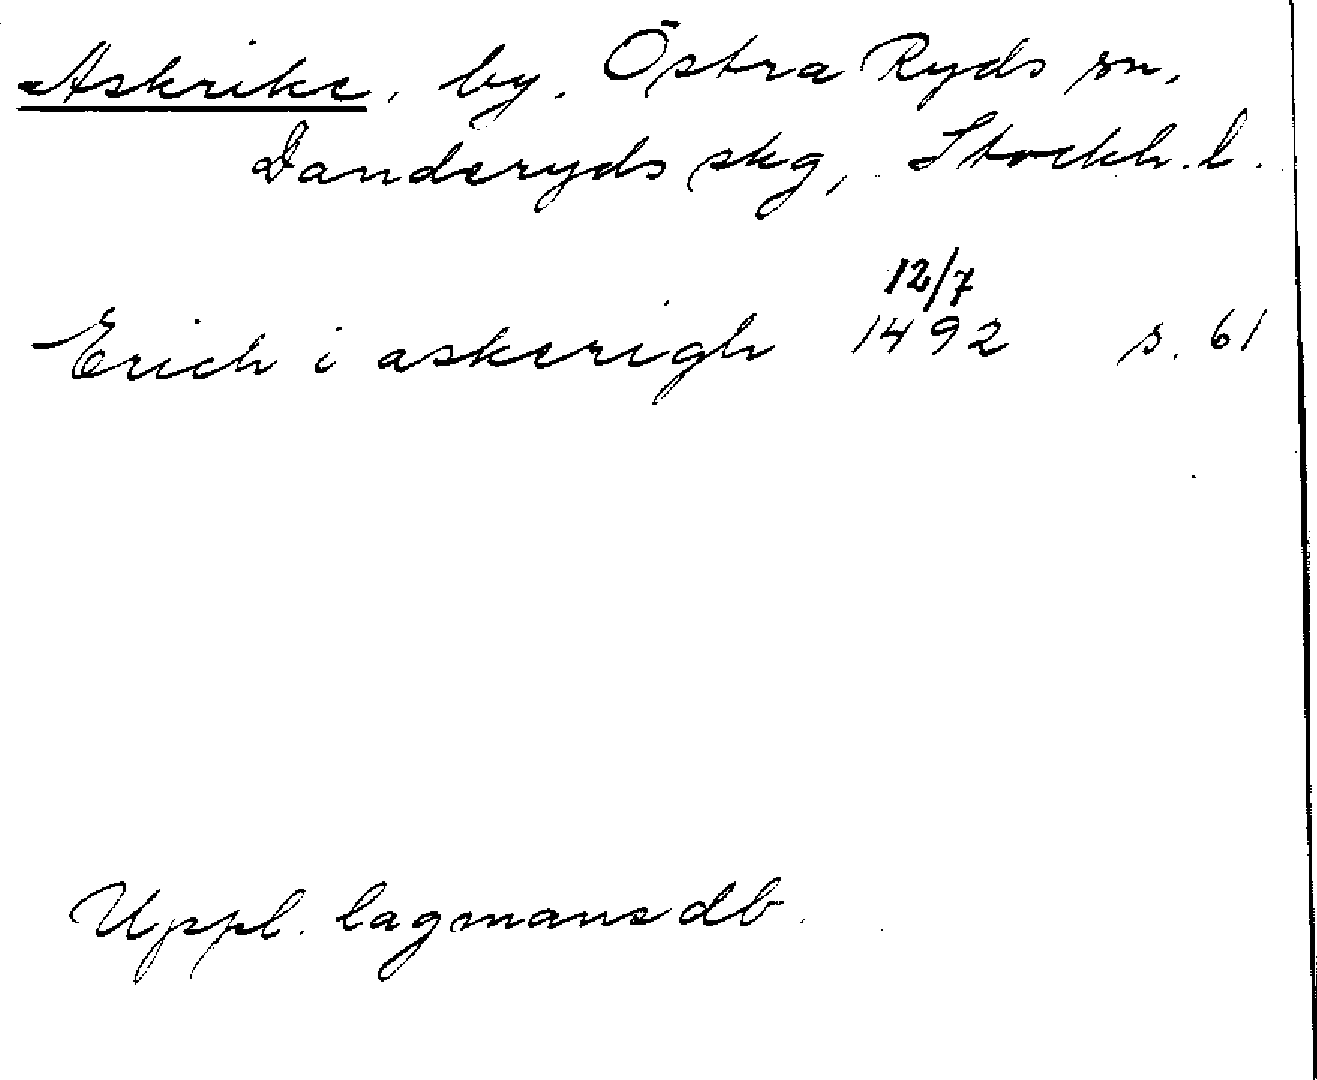 Askrike, by. Östra Ryds sn.
Danderyds skg, Stockh. l.
12/7
Erich i askerigh 1492 s. 61
Uppl. lagmansdb.